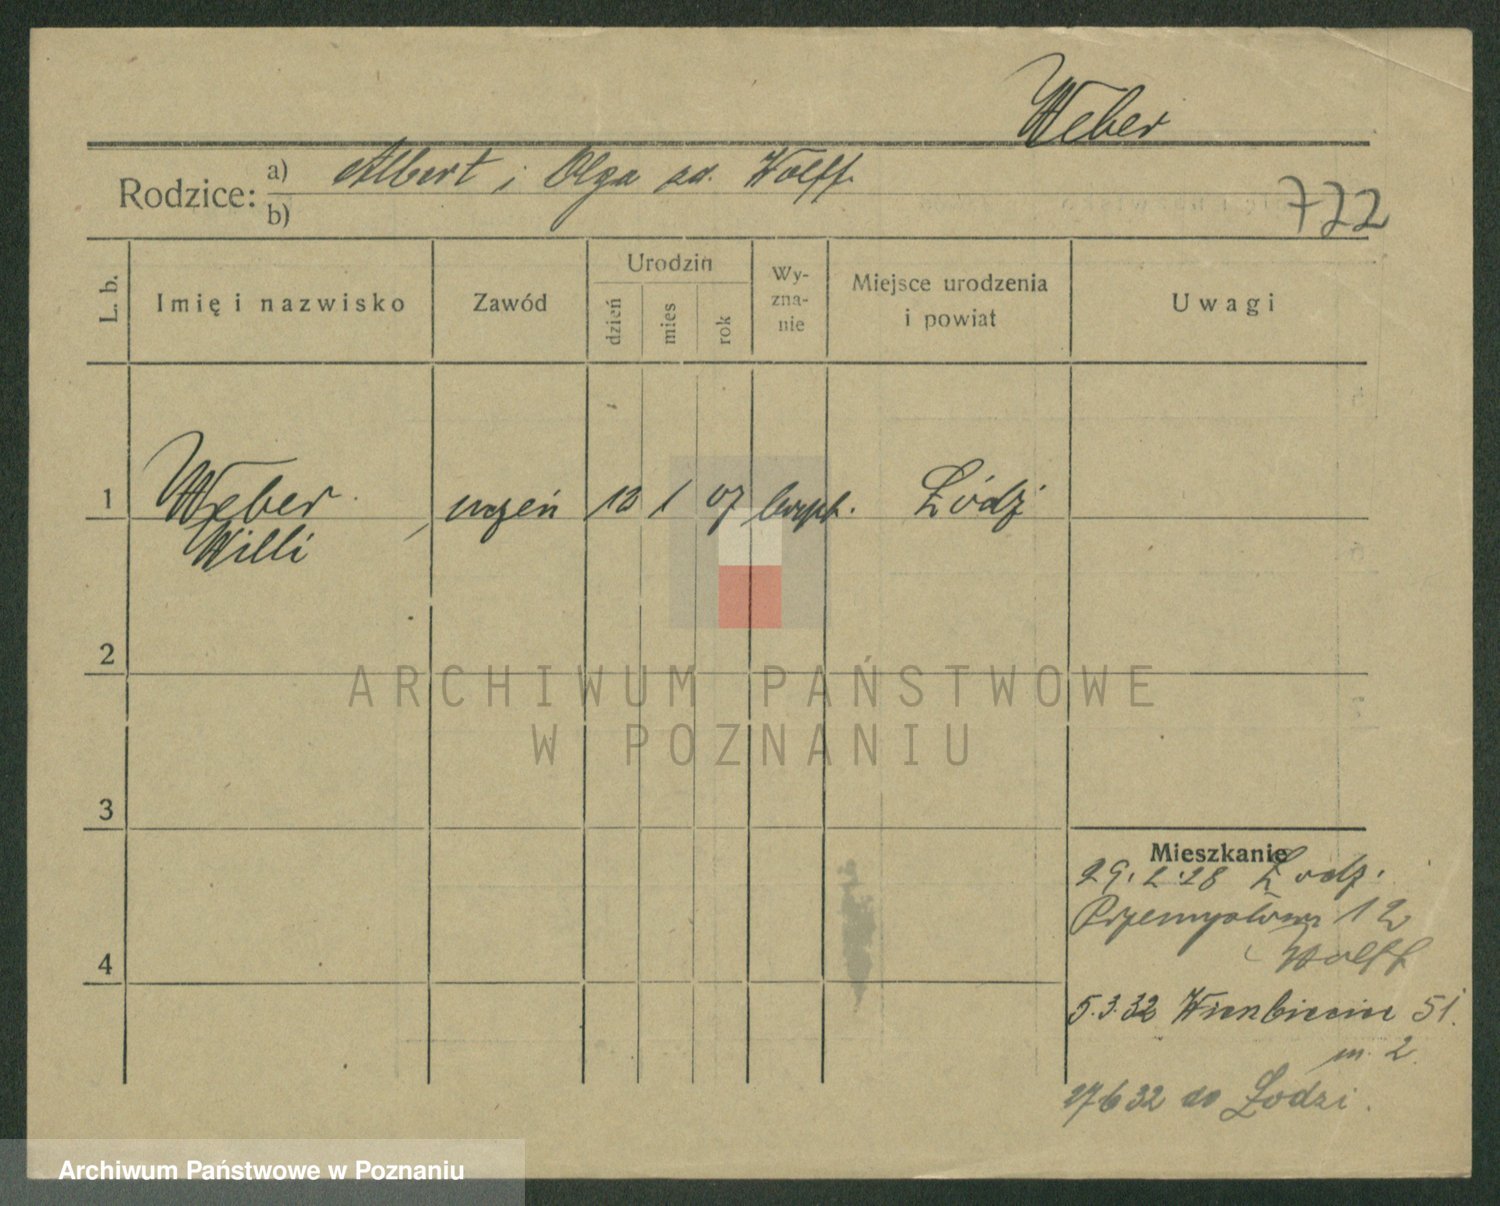 Weber
Rodzice: a) Albert i Olga zd. Wolff.
b)
722
L. b. Imię i nazwisko Zawód Urodzin dzień mies rok Wyznanie Miejsce urodzenia i powiat Uwagi
1 Weber Willi uczeń 1 07 Łódź
2
3
4
Mieszkanie
29.2.28 Łodz.
Przemysłowa 12
Wolff
5.3.32 51.
m. 2
27 6 32 do Łodzi.
ARCHIWUM PAŃSTWOWE
W POZNANIU
Archiwum Państwowe w Poznaniu